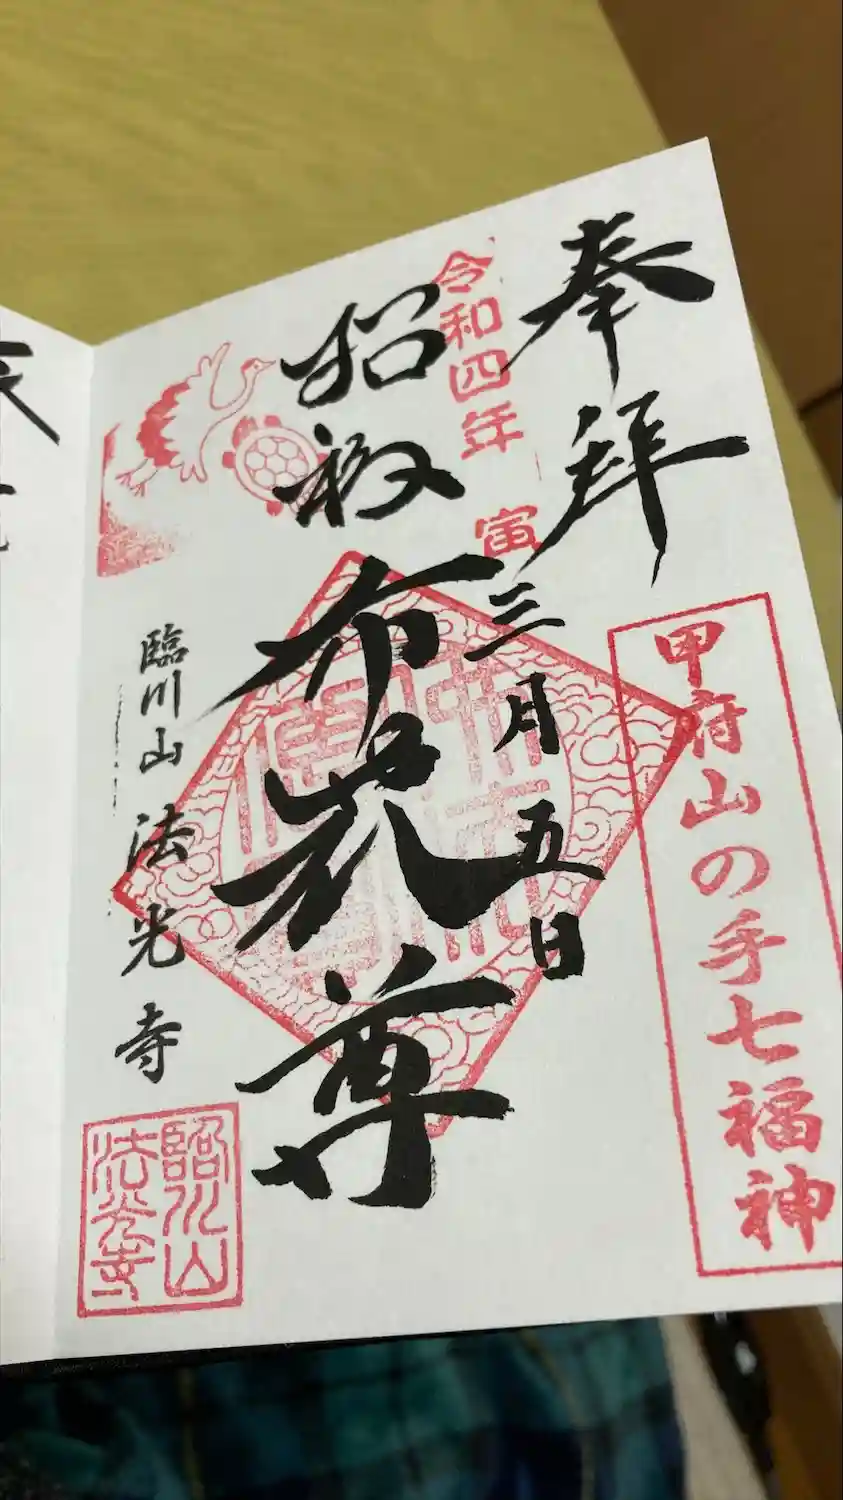 奉拝
甲府山の手七福神
令和四年 寅
三月五日
招福
布袋尊
臨川山 法光寺
臨川山
法光寺